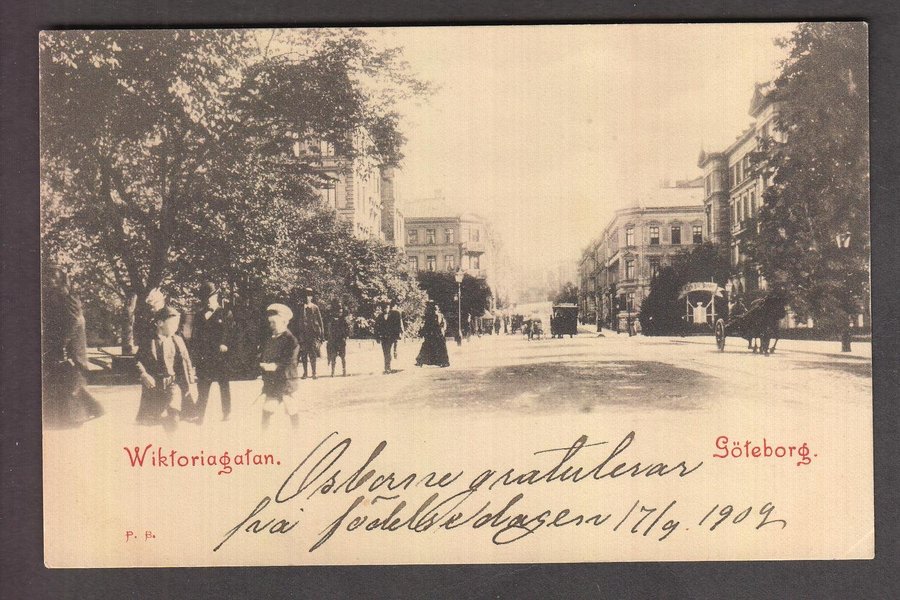 Wiktoriagatan.
Göteborg.
Osborne gratulerar
på födelsedagen 17/9. 1902
P. B.